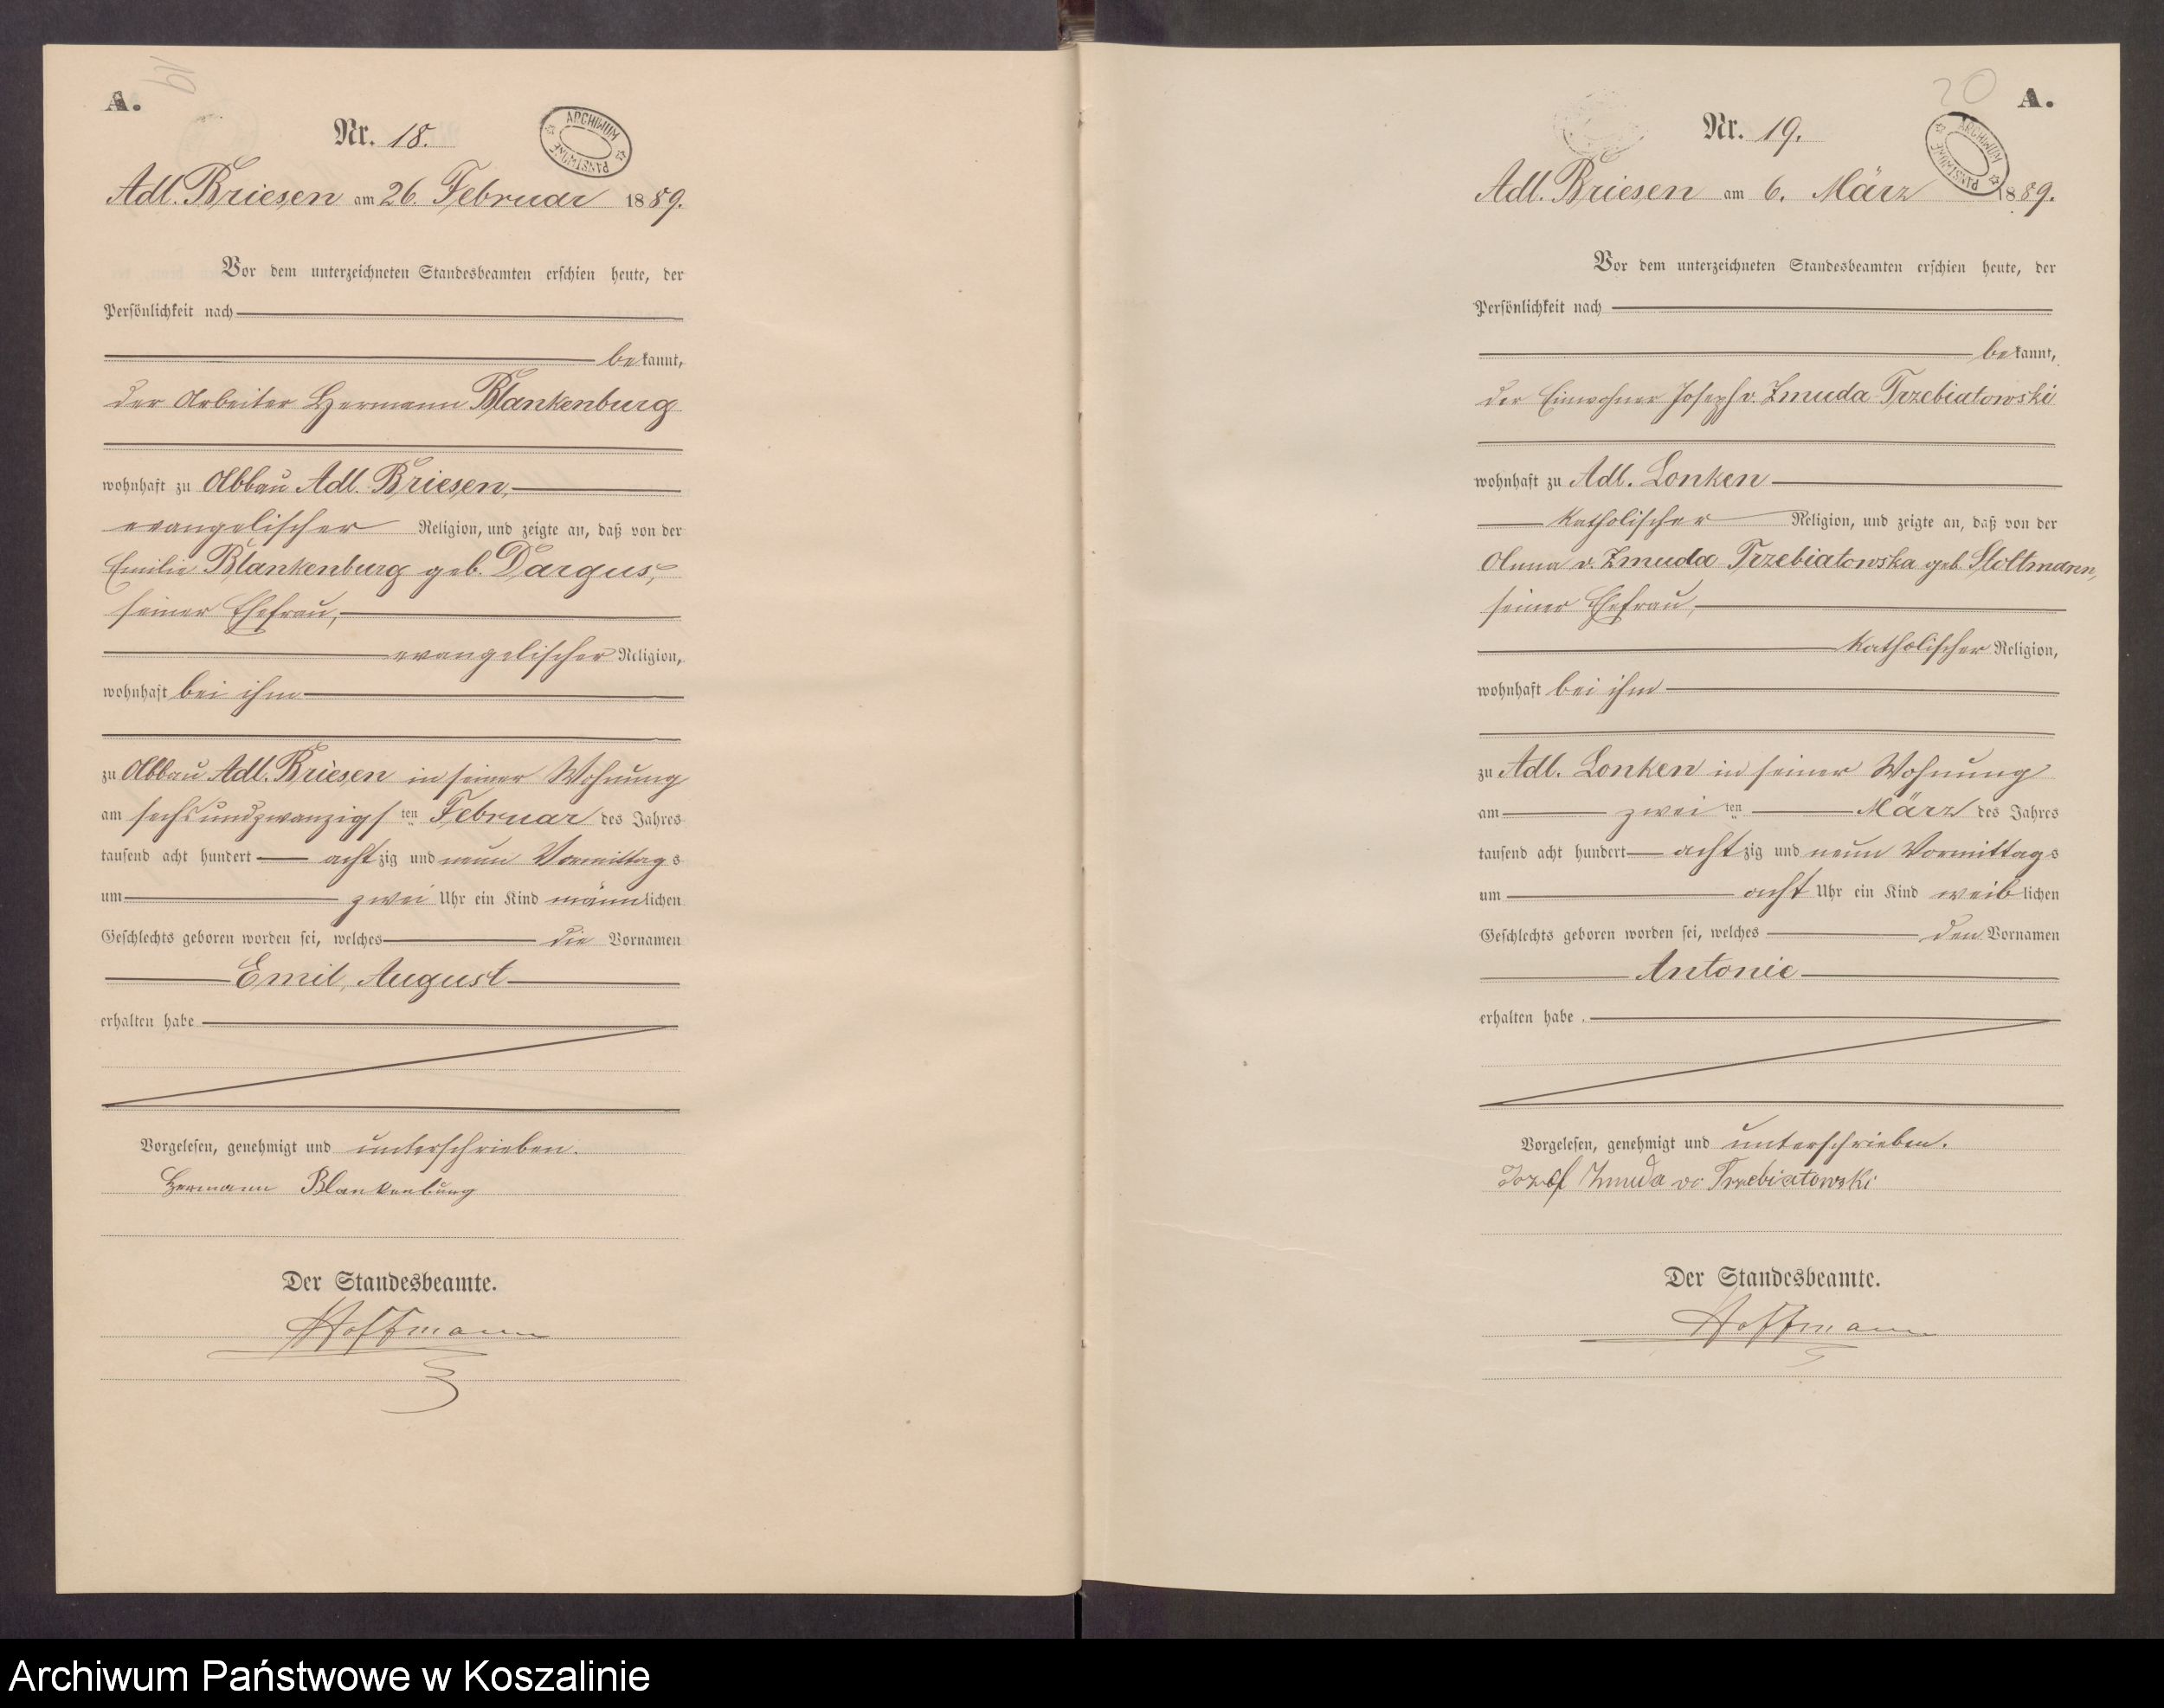 A.
19
Nr. 18.
ARCHIWUM PAŃSTWOWE
Adl. Briesen am 26. Februar 1889.
Vor dem unterzeichneten Standesbeamten erschien heute, der
Persönlichkeit nach
bekannt,
der Arbeiter Hermann Blankenburg
wohnhaft zu Abbau Adl. Briesen,
evangelischer Religion, und zeigte an, daß von der
Emilie Blankenburg geb. Dargus,
seiner Ehefrau,
evangelischer Religion,
wohnhaft bei ihm
zu Abbau Adl. Briesen in seiner Wohnung
am sechsundzwanzigsten Februar des Jahres
tausend acht hundert achtzig und neun Vormittags
um zwei Uhr ein Kind männlichen
Geschlechts geboren worden sei, welches die Vornamen
Emil, August
erhalten habe
Vorgelesen, genehmigt und unterschrieben.
Hermann Blankenburg
Der Standesbeamte.
Hoffmann
20
A.
Nr. 19.
ARCHIWUM PAŃSTWOWE
Adl. Briesen am 6. März 1889.
Vor dem unterzeichneten Standesbeamten erschien heute, der
Persönlichkeit nach
bekannt,
der Einwohner Joseph v. Zmuda Trzebiatowski
wohnhaft zu Adl. Lonken
katholischer Religion, und zeigte an, daß von der
Anna v. Zmuda Trzebiatowska geb. Stoltmann,
seiner Ehefrau,
katholischer Religion,
wohnhaft bei ihm
zu Adl. Lonken in seiner Wohnung
am zweiten März des Jahres
tausend acht hundert achtzig und neun Vormittags
um acht Uhr ein Kind weiblichen
Geschlechts geboren worden sei, welches den Vornamen
Antonie
erhalten habe.
Vorgelesen, genehmigt und unterschrieben.
Jozef Zmuda vo Trzebiatowski
Der Standesbeamte.
Hoffmann
Archiwum Państwowe w Koszalinie